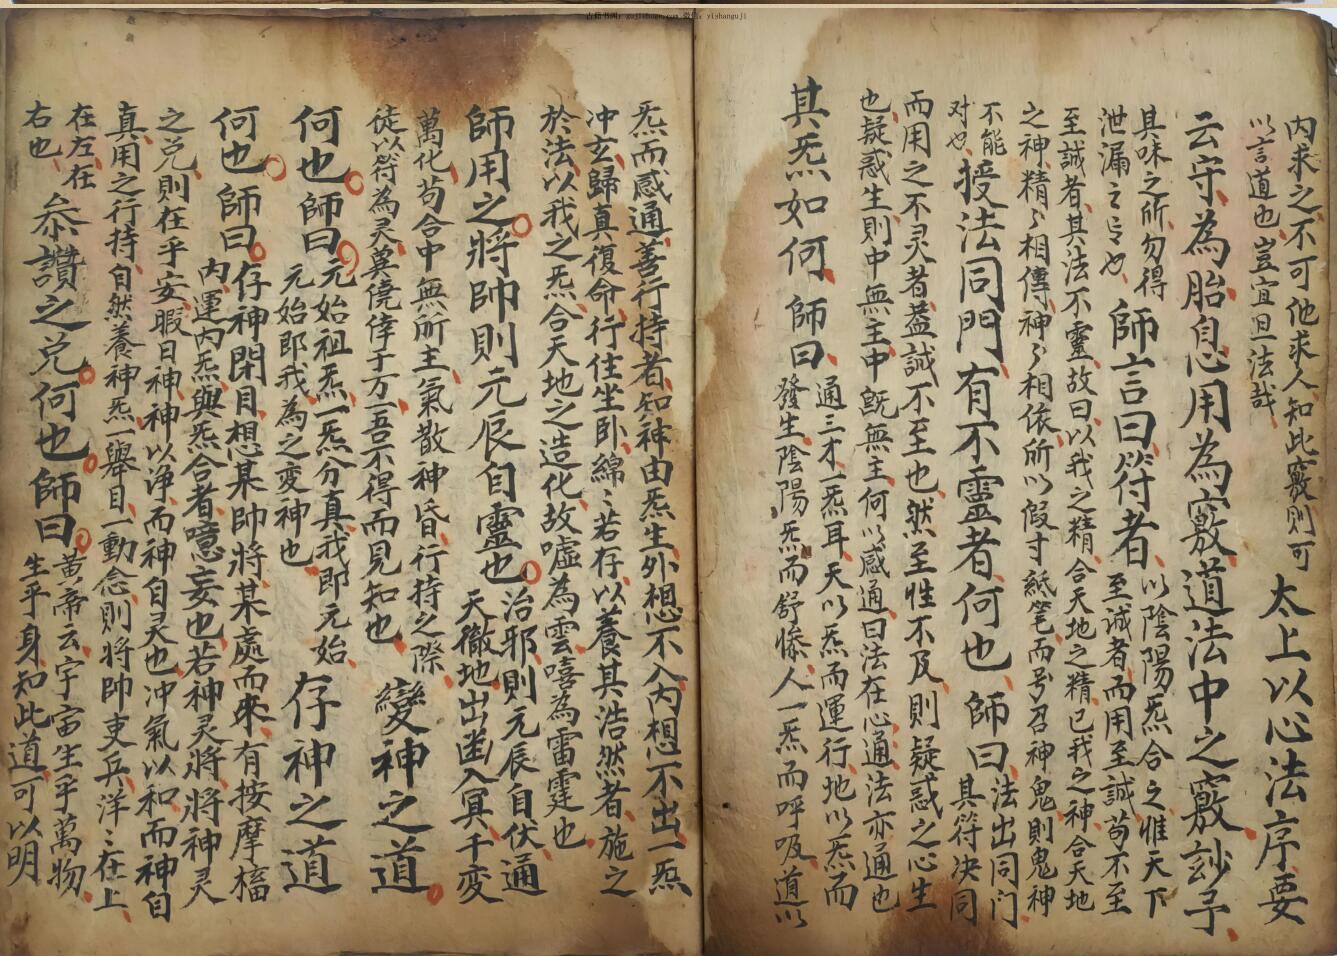 古籍书阁: gujishuge.com 微信: yishanguji
内求之不可他求人知此竅則可
以言道也豈宜旦法哉
太上以心法序要
云守為胎息用為竅道法中之竅玅予
其味之所勿得
泄漏之之也
師言曰符者
以陰陽炁合之惟天下
至誠者而用至誠苟不至
至誠者其法不靈故曰以我之精合天地之精已我之神合天地
之神精々相傳神々相依所以假寸紙笔而号召神鬼則鬼神
不能
对也
授法同門有不靈者何也師曰
法出同门
其符决同
而用之不灵者葢誠不至也然至性不及則疑惑之心生
也疑惑生則中無主中既無主何以感通曰法在心通法亦通也
其炁如何師曰
通三才一炁耳天以炁而運行地以炁而
發生陰陽炁而舒惨人一炁而呼吸道以
炁而感通善行持者知神由炁生外想不入内想不出一炁
冲玄歸真復命行住坐卧綿〻若存以養其浩然者施之
於法以我之炁合天地之造化故嘘為雲嘻為雷霆也
師用之將帥則元辰自靈也
治邪則元辰自伏通
天徹地出幽入冥千变
萬化苟合中無所主氣散神昏行持之際
徒以符為灵冀僥倖于万一吾不得而見知也
變神之道
何也師曰
元始祖炁一炁分真我即元始
元始即我為之变神也
存神之道
何也師曰
存神閉目想某帥將某處而來有按摩
内運内炁與炁合者噫妄也若神灵將將神灵
之兑則在乎安暇日神神以净而神自灵也冲氣以和而神自
真用之行持自然養神炁一舉目一動念則將帥吏兵洋〻在上
在左在
右也
叅讚之兑何也師曰
黄帝云宇宙生乎萬物
生乎身知此道可以明